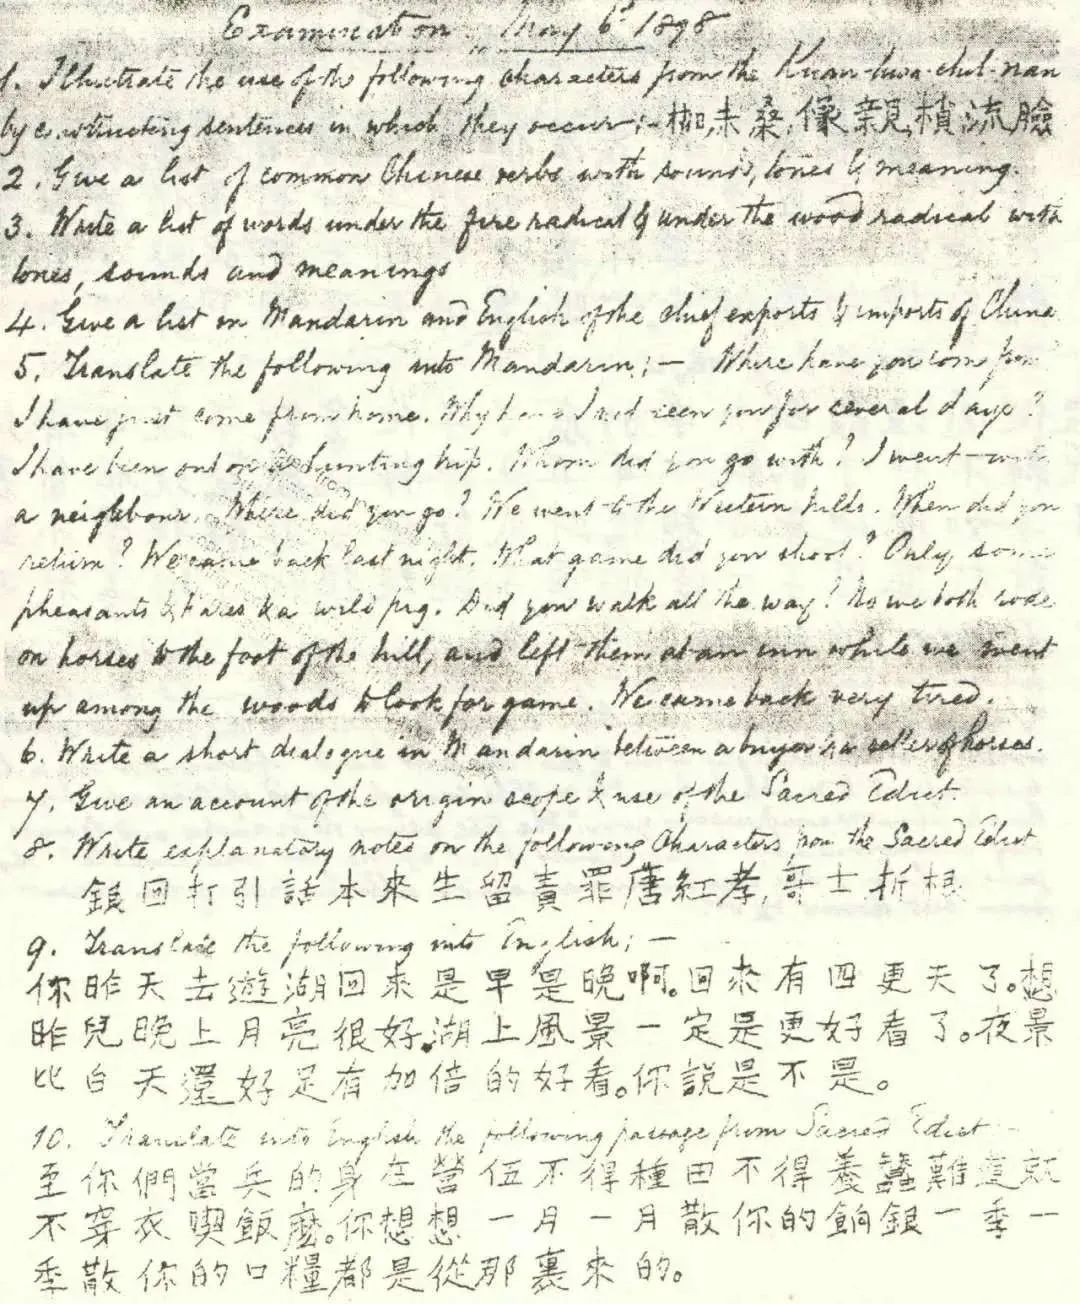 Examination, May 6th 1898
1. Illustrate the use of the following characters from the Kuan-hwa-chih-nan
by constructing sentences in which they occur;- 枷,未,桑,像,親,楨,流,臉
2. Give a list of common Chinese verbs with sounds, tones & meaning.
3. Write a list of words under the fire radical & under the wood radical with
tones, sounds and meanings
4. Give a list in Mandarin and English of the chief exports & imports of China
5. Translate the following into Mandarin; — Where have you come from
I have just come from home. Why have I not seen you for several days?
I have been out on a hunting trip. Whom did you go with? I went with
a neighbour. Where did you go? We went to the Western hills. When did you
return? We came back last night. What game did you shoot? Only some
pheasants & hares & a wild pig. Did you walk all the way? No we both rode
on horses to the foot of the hill, and left them at an inn while we went
up among the woods to look for game. We came back very tired.
6. Write a short dialogue in Mandarin between a buyer & a seller of horses.
7. Give an account of the origin scope & use of the Sacred Edict.
8. Write explanatory notes on the following Characters from the Sacred Edict
銀回打引話本來生留責罪唐紅孝,哥士折根
9. Translate the following into English; —
你昨天去遊湖回來是早是晚啊。回來有四更天了。想
昨兒晚上月亮很好.湖上風景一定是更好看了。夜景
比白天還好足有加倍的好看。你說是不是。
10. Translate into English the following passage from Sacred Edict —
至你們當兵的身在營伍不得種田不得養蠶難道就
不穿衣喫飯麽。你想想一月一月散你的餉銀一季一
季散你的口糧都是從那裏來的。